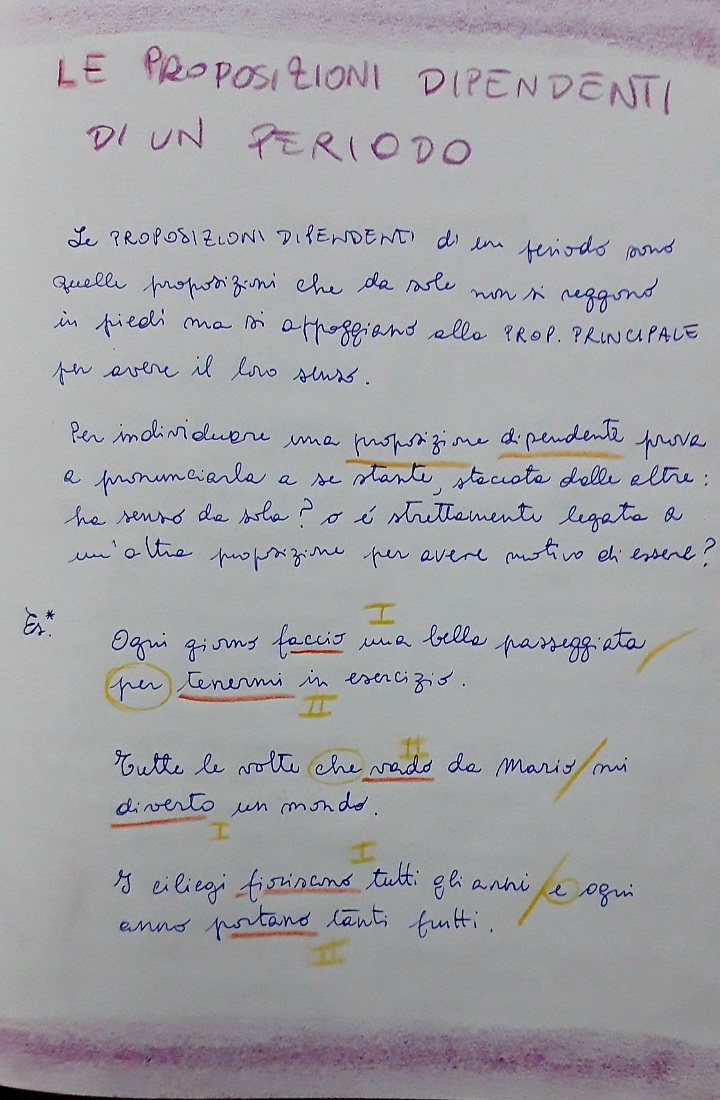 LE PROPOSIZIONI DIPENDENTI
DI UN PERIODO
Le PROPOSIZIONI DIPENDENTI di un periodo sono
quelle proposizioni che da sole non si reggono
in piedi ma si appoggiano alla PROP. PRINCIPALE
per avere il loro senso.
Per individuare una proposizione dipendente prova
a pronunciarla a se stante, staccata dalle altre:
ha senso da sola? o é strettamente legata a
un'altra proposizione per avere motivo di essere?
I
Es.* Ogni giorno faccio una bella passeggiata /
per tenermi in esercizio.
II
II
Tutte le volte che vado da Mario / mi
diverto un mondo.
I
I
I ciliegi fioriscono tutti gli anni / e ogni
anno portano tanti frutti.
II